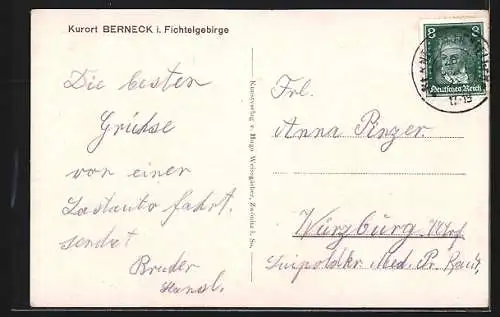 Kurort BERNECK i. Fichtelgebirge
Die besten
Grüchse
von einer
Lastauto fahrt.
sendet
Bruder
Hansl.
Kunstverlag v. Hugo Weissgärber, Zwönitz i. Sa.
8 8
Deutsches Reich
Frl.
Anna Pinzer.
Würzburg
Luipoldkr. Med. Pr.